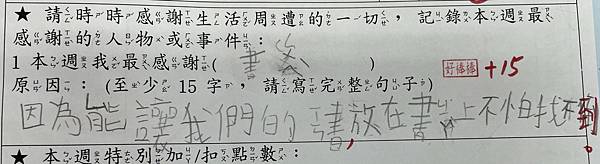 ★ 請時時感謝生活周遭的一切，記錄本週最
感謝的人物或事件：
1 本週我最感謝(書)好棒棒 +15
原因：(至少 15 字，請寫完整句子)
因為能讓我們的書放在書上不怕找不到。
★ 本週特別加/扣點數：